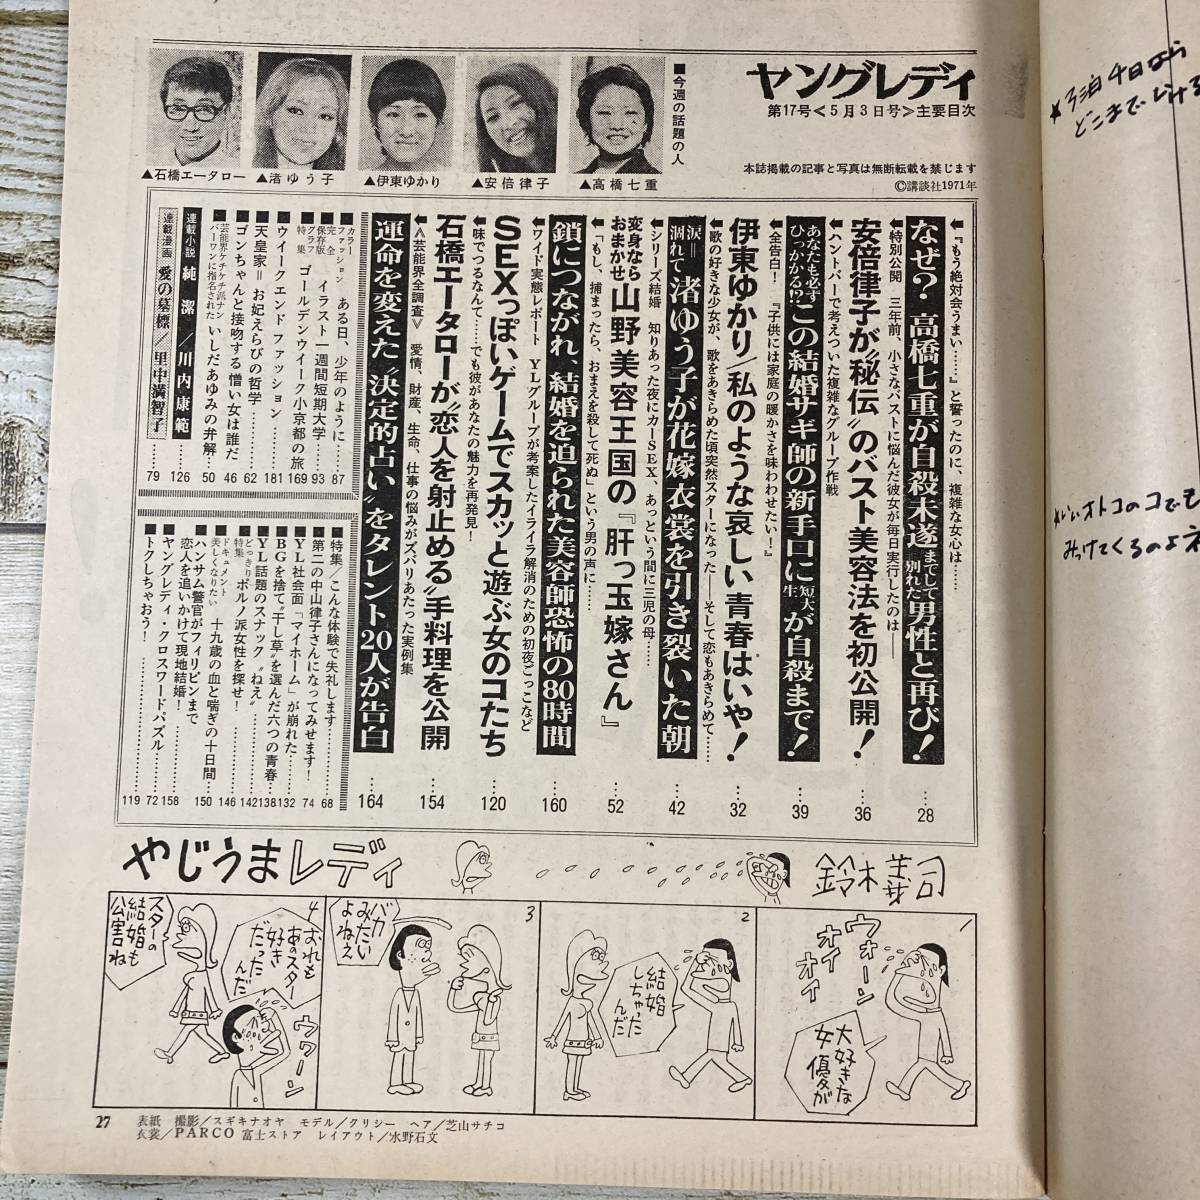 ヤングレディ
第17号≪5月3日号≫主要目次
本誌掲載の記事と写真は無断転載を禁じます
©講談社1971年
■今週の話題の人
▲高橋七重
▲安倍律子
▲伊東ゆかり
▲渚ゆう子
▲石橋エータロー
◀『もう絶対会うまい……』と誓ったのに、複雑な女心は……
なぜ?高橋七重が自殺未遂までして別れた男性と再び!……28
◀特別公開 三年前、小さなバストに悩んだ彼女が毎日実行したのは——
安倍律子が〝秘伝〟のバスト美容法を初公開!……36
◀ハンバーバーで考えついた複雑なグループ作戦
あなたも必ずひっかかる!?この結婚サギ師の新手口に短大生が自殺まで!……39
◀全告白! 『子供には家庭の暖かさを味わわせたい!』
伊東ゆかり/私のような哀しい青春はいや!……32
◀歌の好きな少女が、歌をあきらめた頃突然スターになった——そして恋もあきらめて……
涙=涸れて渚ゆう子が花嫁衣裳を引き裂いた朝……42
◀シリーズ結婚 知りあった夜にカーSEX、あっという間に三児の母……
変身ならおまかせ山野美容王国の『肝っ玉嫁さん』……52
◀「もし、捕まったら、おまえを殺して死ぬ」という男の声に……
鎖につながれ、結婚を迫られた美容師恐怖の80時間……160
◀ワイド実態レポート YLグループが考案したイライラ解消のための初夜ごっこなど
SEXっぽいゲームでスカッと遊ぶ女のコたち……120
◀味でつるなんて……でも彼があなたの魅力を再発見!
石橋エータローが〝恋人を射止める〟手料理を公開……154
◀≪芸能界全調査≫ 愛情、財産、生命、仕事の悩みがズバリあたった実例集
運命を変えた〝決定的占い〟をタレント20人が告白……164
■カラーファッション ある日、少年のように……87
■完全保存版 イラスト一週間短期大学……93
■グラフ特集 ゴールデンウイーク小京都の旅……169
■ウイークエンド ファッション……181
■天皇家=お妃えらびの哲学……62
■ゴンちゃんと接吻する憎い女は誰だ……46
■芸能界ケチケチ派ナンバーワンに指名された いしだあゆみの弁解……50
連載小説 純潔/川内康範……126
連載漫画 愛の墓標/里中満智子……79
■特集/こんな体験で失礼します……68
■第二の中山律子さんになってみせます!……74
■YL社会面「マイホーム」が崩れた……132
■BGを捨て〝干し草〟を選んだ六つの青春……138
■YL話題のスナック〝ねえ〟……142
■どっきり特集 ポルノ派女性を探せ!……146
■ドキュメント 美しくなりたい 十九歳の血と喘ぎの十日間……150
■ハンサム警官がフィリピンまで恋人を追いかけて現地結婚!……158
■ヤングレディ・クロスワードパズル……72
■トクしちゃおう!……119
やじうまレディ
鈴木義司
1
ウォーン
オイオイ
大好きな女優が
2
結婚しちゃったんだ
3
バカみたいよねえ
4
おれもあのスター好きだったんだ
ウワーン
スターの結婚も公害ね
27
表紙 撮影/スギキナオヤ モデル/クリシー ヘア/芝山サチコ
衣裳/PARCO 富士ストア レイアウト/水野石文
★3泊4日なら
どこまで
オトコのコでも
みつけてくるのよ